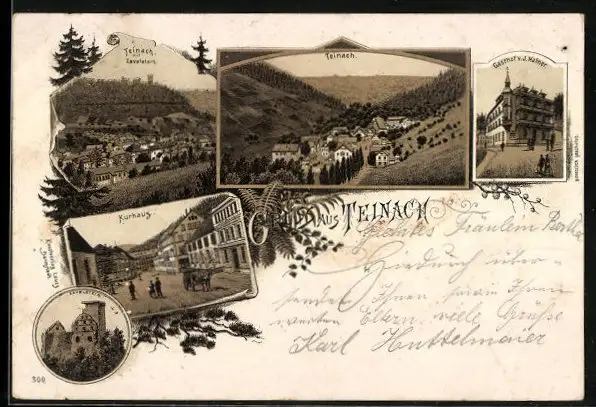 Teinach
mit
Zavelstein.
Teinach.
Gasthof v. J. Hafner.
Kurhaus.
GRUSS AUS TEINACH
Geehrtes Fräulein Bertha
Hiedurch über-
sende Ihnen, sowie Ihren
werten Eltern viele Grüße
Karl Huttelmaier
300